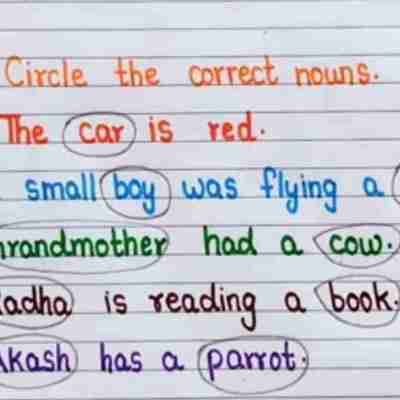 Circle the correct nouns.
The car is red.
small boy was flying a
Grandmother had a cow.
Radha is reading a book.
Akash has a parrot.